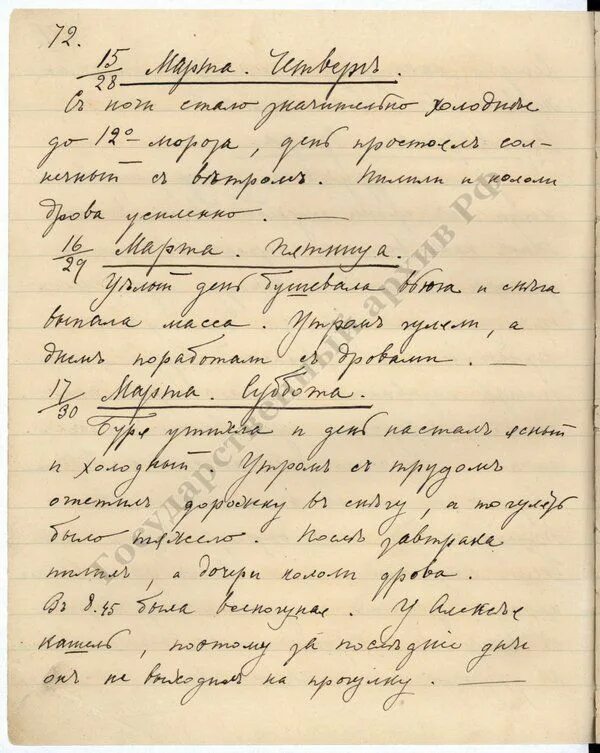 72.
15/28 Марта. Четвергъ.
Съ ночи стало значительно холоднѣе
до 12° мороза, день простоялъ сол-
нечный съ вѣтромъ. Пилили и кололи
дрова усиленно. —
16/29 Марта. Пятница.
Цѣлый день бушевала вьюга и снѣга
выпала масса. Утромъ гуляли, а
днемъ поработали съ дровами. —
17/30 Марта. Суббота.
Буря утихла и день насталъ ясный
и холодный. Утромъ съ трудомъ
отчистилъ дорожку въ снѣгу, а то гулять
было тяжело. Послѣ завтрака
пилилъ, а дочери кололи дрова.
Въ 8.45 была всенощная. У Алексѣя
кашель, поэтому за послѣдніе дни
онъ не выходилъ на прогулку. —
Государственный архив РФ